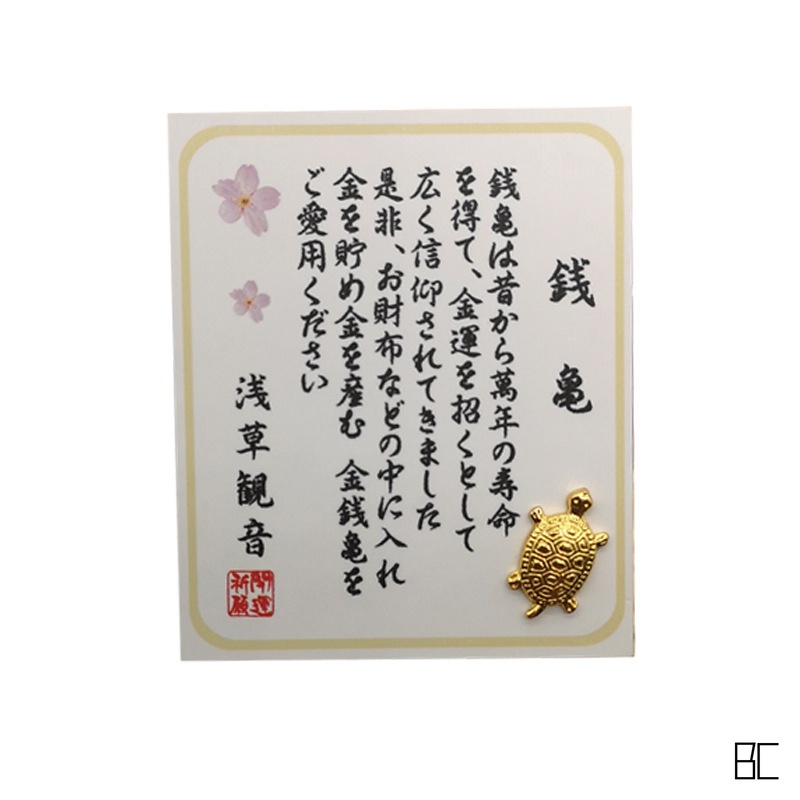 銭亀
銭亀は昔から萬年の寿命
を得て、金運を招くとして
広く信仰されてきました
是非、お財布などの中に入れ
金を貯め金を産む 金銭亀を
ご愛用ください
浅草観音
開運
祈願
BC